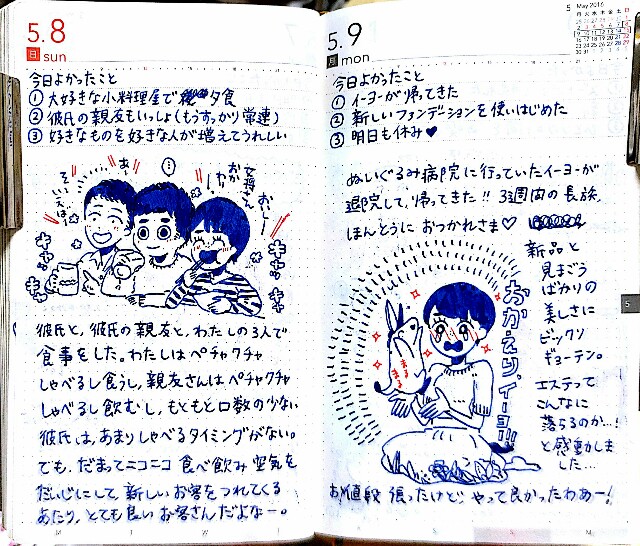 5.8
日 sun
今日よかったこと
① 大好きな小料理屋で夕食
② 彼氏の親友もいっしょ(もうすっかり常連)
③ 好きなものを好きな人が増えてうれしい
そういえば
あー
女将さん
おかわり
おいしー
キャッ
キャッ
彼氏と、彼氏の親友と、わたしの3人で
食事をした。わたしはペチャクチャ
しゃべるし食うし、親友さんはペチャクチャ
しゃべるし飲むし、もともと口数の少ない
彼氏は、あまりしゃべるタイミングがない。
でも、だまってニコニコ 食べ飲み 空気を
だいじにして、新しいお客をつれてくる
あたり、とても良いお客さんだよなー。
5.9
月 mon
May 2016
月 火 水 木 金 土 日
今日よかったこと
① イーヨーが帰ってきた
② 新しいファンデーションを使いはじめた
③ 明日も休み♥
ぬいぐるみ病院に行っていたイーヨーが
退院して、帰ってきた!! 3週間の長旅、
ほんとうに おつかれさま♡
新品と
見まごう
ばかりの
美しさに
ビックリ
ギョーテン。
エステって
こんなに
落ちるのか…!
と感動しま
した…
おかえり、イーヨー!!
お値段 張ったけど、やって良かったわぁー!
5